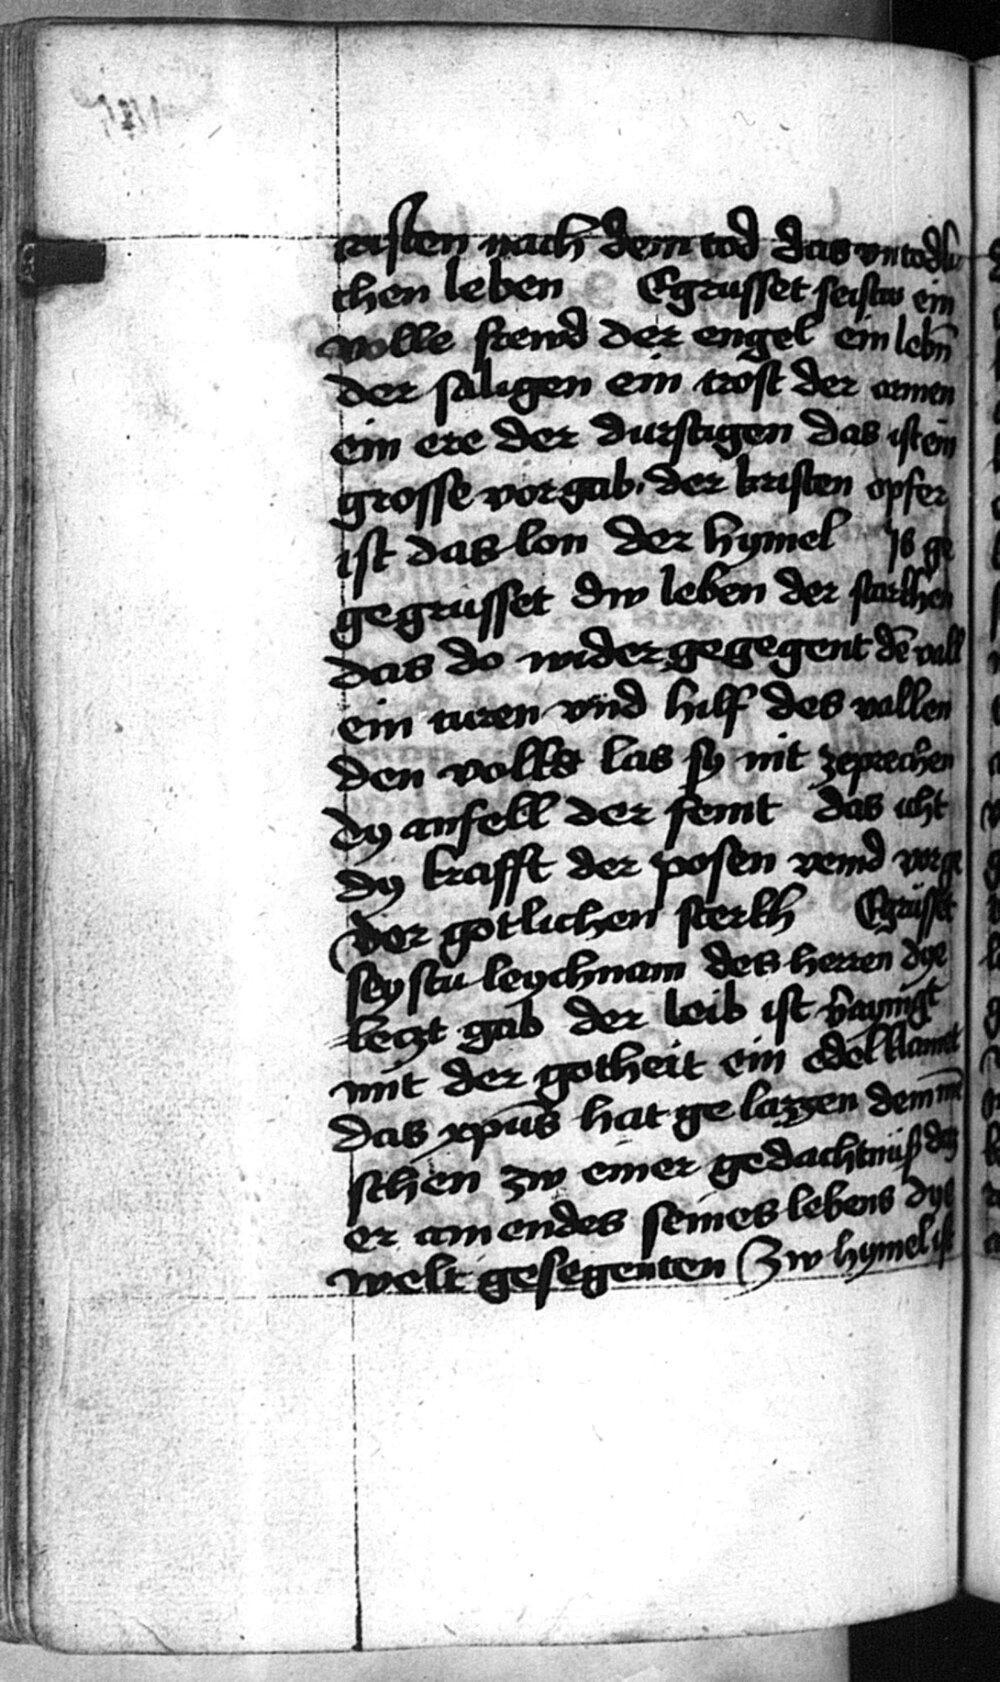 risten nach dem tod das vntodli
chen leben Egrusset seistw ein
volle frewd der engel ein lebn̄
der saligen ein trost der armen
ein ere der durstigen das ist ein
grosse vorgab der kristen opfer
ist das lon der hymel Js ge
gegrusset dw leben der starkhen
das do widergegegent dē vall
ein turen vnd hilf des vallen
den volks las sy nit zeprechen
dy anfell der feint das icht
dy krafft der posen veind vorge
der gotlichen sterkh Egrüsset
seystu leychnam des herren dye
leczt gab der leib ist v̄aynigt
mit der gotheit ein edel klainet
das xp̄us hat gelazzen dem mē
schen zw einer gedachtnüß do
er am endes seines lebens dye
welt gesegenten Zw hymel ist